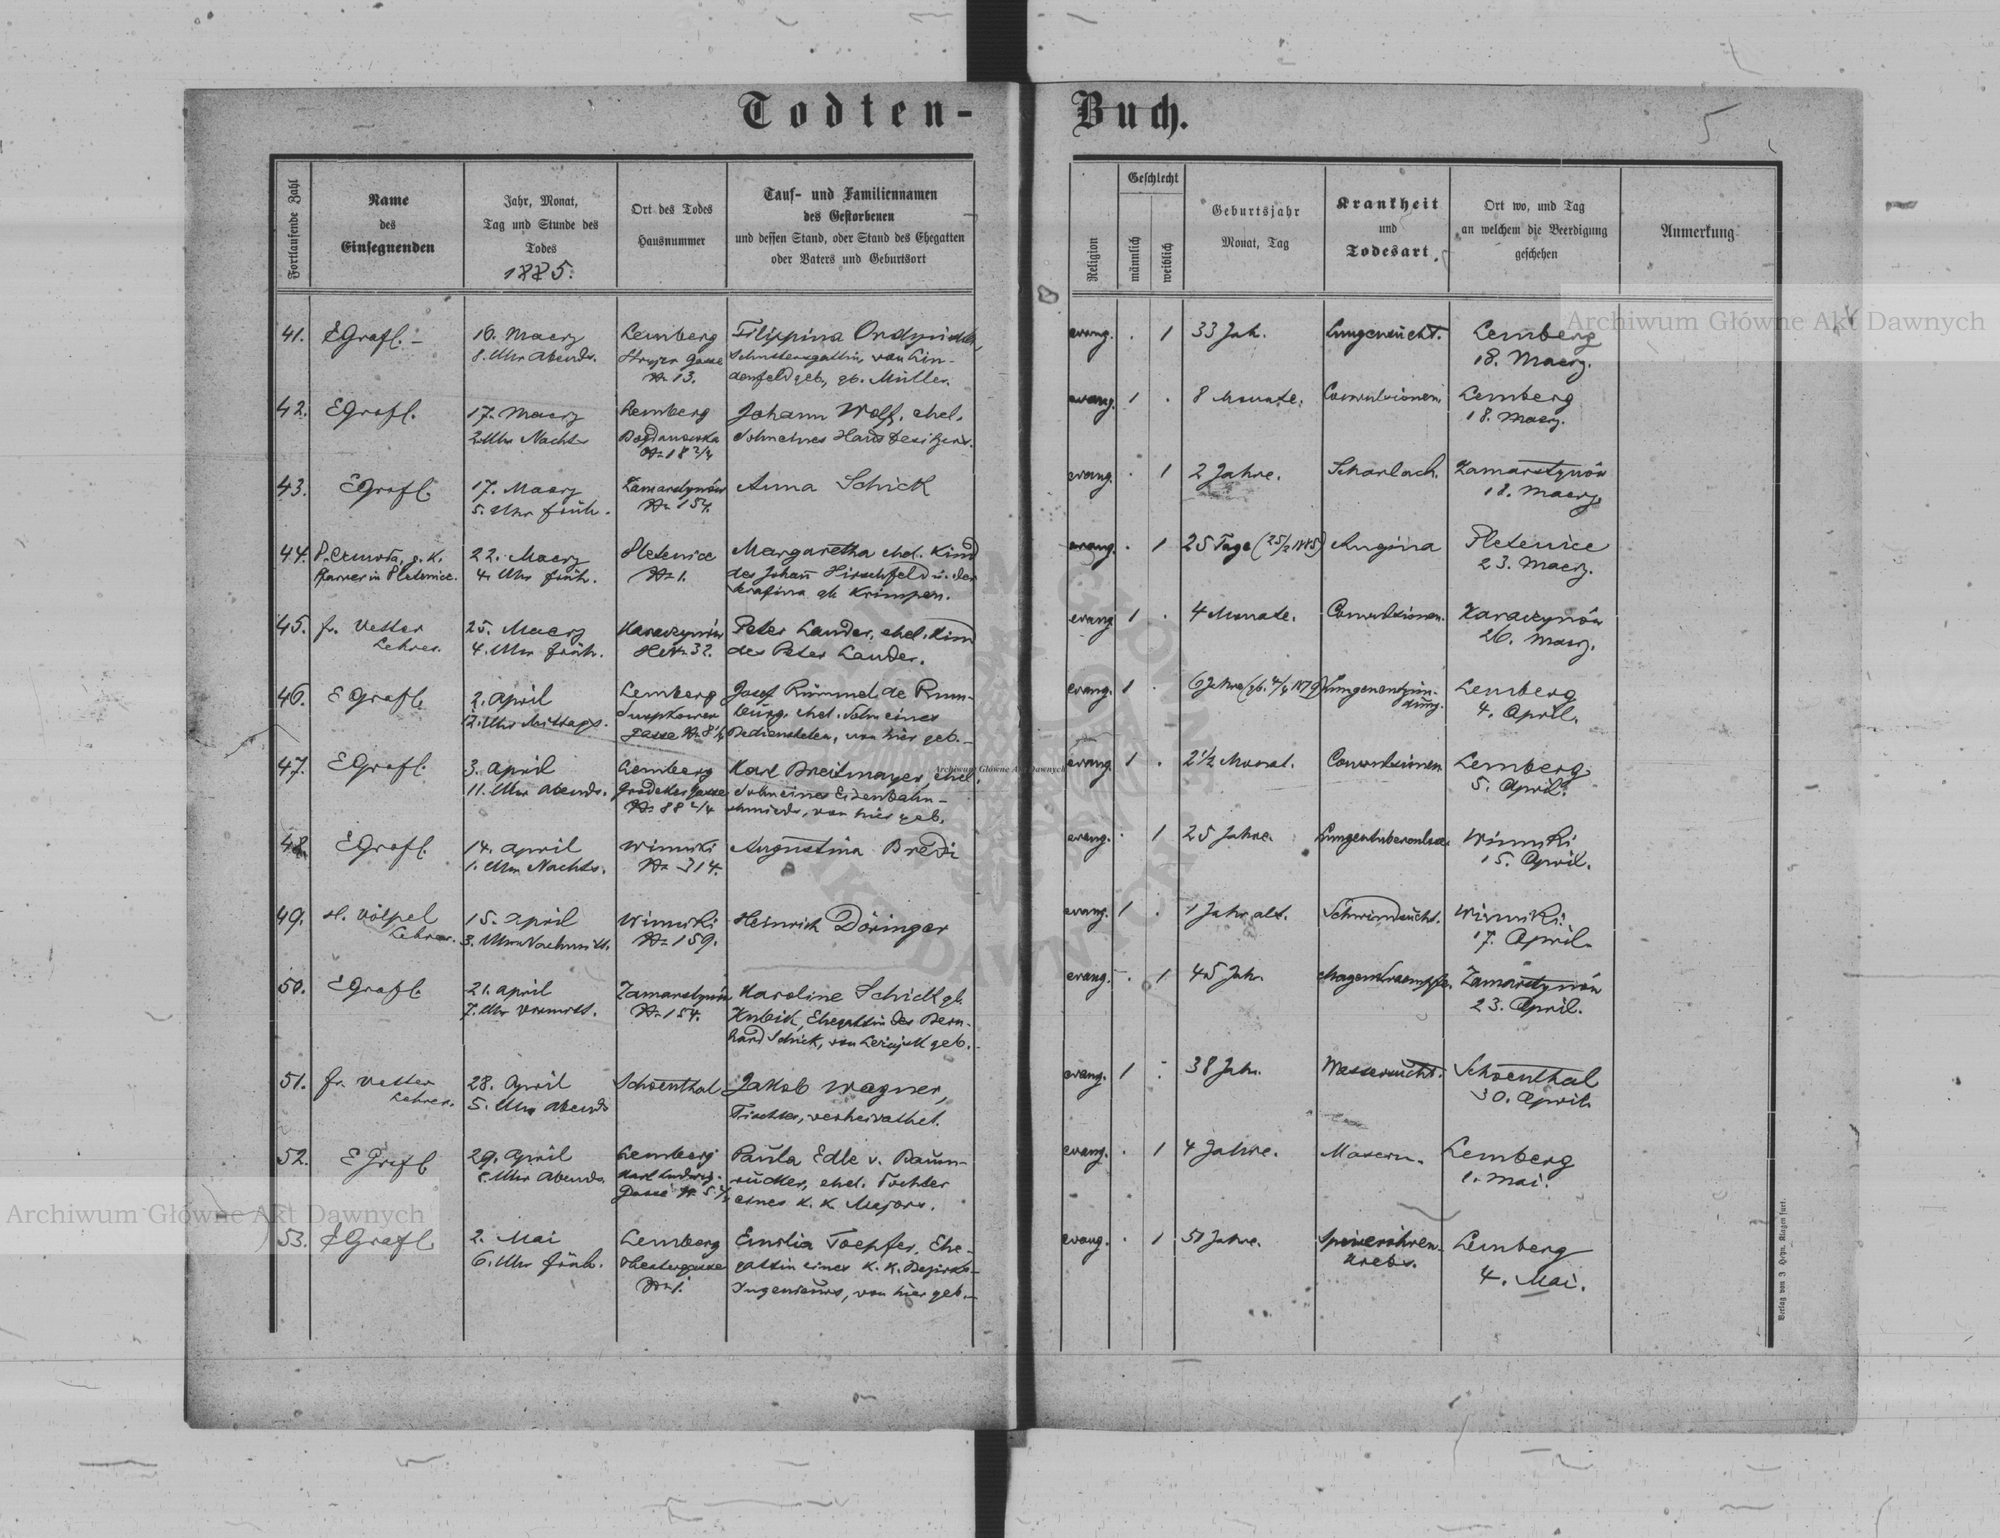 Todten-
Buch.
5
Fortlaufende Zahl
Name
des
Einsegnenden
Jahr, Monat,
Tag und Stunde des
Todes
1885.
Ort des Todes
Hausnummer
Tauf- und Familiennamen
des Gestorbenen
und dessen Stand, oder Stand des Ehegatten
oder Vaters und Geburtsort
Religion
Geschlecht
männlich
weiblich
Geburtsjahr
Monat, Tag
Krankheit
und
Todesart.
Ort wo, und Tag
an welchem die Beerdigung
geschehen
Anmerkung
41.
EGrafl.
16. Maerz
8. Uhr Abends.
Lemberg
Stryjer Gasse
Nr 13.
Filippina
Schustersgattin, von Lin-
denfeld geb., gb. Müller.
evang. . 1
33 Jah.
Lungensucht.
Lemberg
18. Maerz.
42.
EGrafl.
17. Maerz
2. Uhr Nachts
Lemberg
Bogdanowka
Nr 18 2/4
Johann Wolf, ehel.
Sohn eines Hausbesitzers.
evang. 1 .
8 Monate.
Convulsionen.
Lemberg
18. Maerz.
43.
EGrafl.
17. Maerz
5. Uhr früh.
Zamarstynów
Nr 154.
Anna Schick
evang. . 1
2 Jahre.
Scharlach.
Zamarstynów
18. Maerz.
44.
Pfarrer in Pletenice.
22. Maerz
4. Uhr früh.
Pletenice
Nr 1.
Margaretha ehel. Kind
des Johann Hirschfeld u. der
gb. Krimpen.
evang. . 1
25 Tage (25/2 1885)
Angina
Pletenice
23. Maerz.
45.
fr. Vetter
Lehrer.
25. Maerz
4. Uhr früh.
Karaczynów
HsNr 32.
Peter Lander, ehel. Kind
des Peter Lander.
evang. 1 .
4 Monate.
Convulsionen.
Karaczynów
26. Maerz.
46.
EGrafl.
2. April
12. Uhr Mittags.
Lemberg
Gasse Nr 8 1/4
Josef Rümmel de Rum-
burg, ehel. Sohn eines
Bediensteten, von hier geb.
evang. 1 .
6 Jahre (gb. 4/4 1879)
Lungenentzün-
dung.
Lemberg
4. April.
47.
EGrafl.
3. April
11. Uhr Abends.
Lemberg
Grodeker Gasse
Nr 88 2/4
Karl Breitmayer, ehel.
Sohn eines Eisenbahn-
schmieds, von hier geb.
evang. 1 .
2 1/2 Monat.
Convulsionen
Lemberg
5. April.
48.
EGrafl.
14. April
1. Uhr Nachts.
Winniki
Nr 314.
Augustina Bredi
evang. . 1
25 Jahre.
Lungentuberculose
Winniki
15. April.
49.
H. Völpel
Lehrer.
15. April
3. Uhr Nachmitt.
Winniki
Nr 159.
Heinrich Döringer
evang. 1 .
1 Jahr alt.
Schwindsucht.
Winniki.
17. April.
50.
EGrafl.
21. April
7. Uhr Vormitt.
Zamarstynów
Nr 154.
Karoline Schick gb.
Kubik, Ehegattin des Bern-
hard Schick, von Lezajsk geb.
evang. . 1
45 Jah.
Magenkrämpfe.
Zamarstynów
23. April.
51.
fr. Vetter
Lehrer.
28. April
5. Uhr Abends
Schoenthal
Jakob Wagner,
Tischler, verheirathet.
evang. 1 .
38 Jah.
Wassersucht.
Schoenthal
30. April.
52.
EGrafl.
29. April
8. Uhr Abends.
Lemberg
Karl Ludwig-
Gasse Nr 5
Paula Edle v. Baum-
rucker, ehel. Tochter
eines K. K. Majors.
evang. . 1
4 Jahre.
Masern.
Lemberg
1. Mai.
53.
EGrafl.
2. Mai
6. Uhr früh.
Lemberg
Theatergasse
Nr 1.
Emilia Toepfer, Ehe-
gattin eines K. K. Bezirks-
Ingenieurs, von hier geb.
evang. . 1
51 Jahre.
Speiseröhren-
Krebs.
Lemberg
4. Mai.
Verlag von J. Heyn, Klagenfurt.
Archiwum Główne Akt Dawnych
Archiwum Główne Akt Dawnych
Archiwum Główne Akt Dawnych